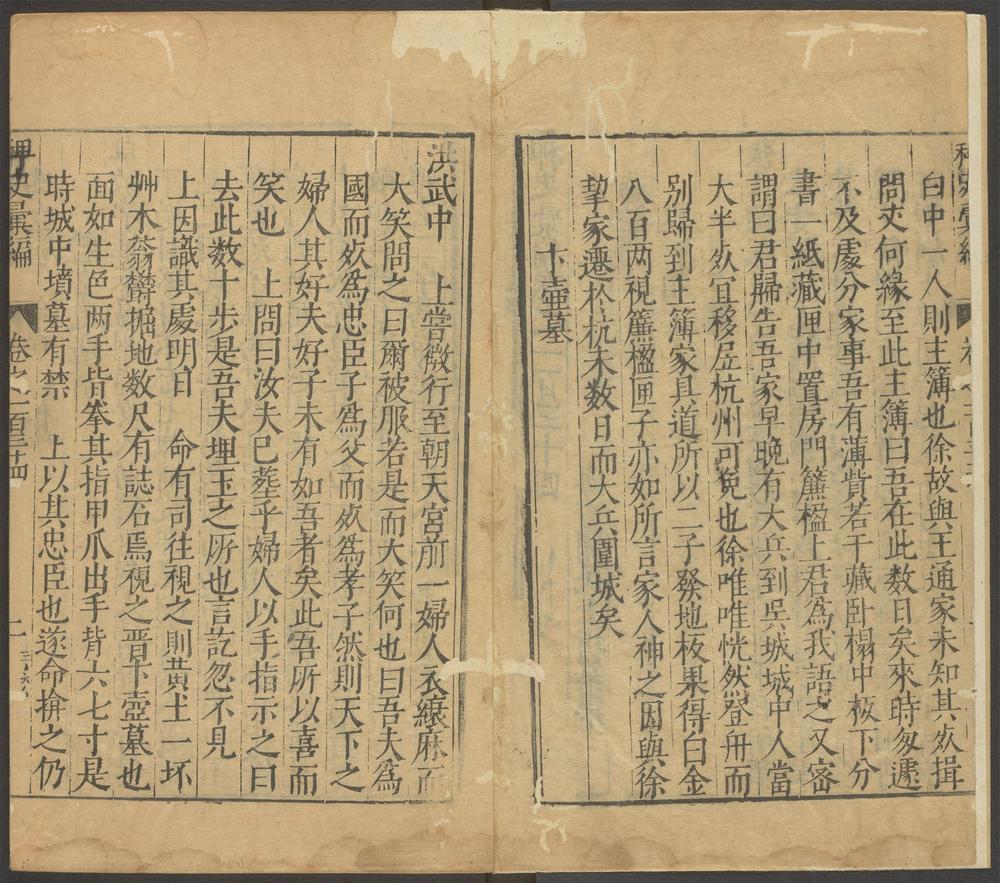 稗史彙編
白中一人則主簿也徐故與王通家未知其𣧑揖
問夾何緣至此主簿曰吾在此数日矣來時匆遽
不及處分家事吾有薄貲若干藏卧榻中板下分
書一紙藏匣中置房門簾楹上君為我語之又宻
謂曰君歸告吾家早晚有大兵到吳城城中人當
大半𣧑宜移居杭州可免也徐唯唯恍然登舟而
别歸到主簿家具道所以二子發地板果得白金
八百两視簾楹匣子亦如所言家人神之因與徐
挈家遷於杭未数日而大兵圍城矣
卞壷墓
洪武中　上嘗微行至朝天宮前一婦人衣縗麻而
大笑問之曰爾被服若是而大笑何也曰吾夫為
國而𣧑為忠臣子為父而𣧑為孝子然則天下之
婦人其好夫好子未有如吾者矣此吾所以喜而
笑也　上問曰汝夫已塟乎婦人以手指示之曰
去此数十步是吾夫埋玉之所也言訖忽不見
上因識其處明日　命有司往視之則黄土一坏
艸木蓊欝掘地数尺有誌石焉視之晋卞壼墓也
面如生色两手皆拳其指甲爪出手背六七寸是
時城中墳墓有禁　上以其忠臣也遂命揜之仍
稗史彙編　卷之一百三十四　二